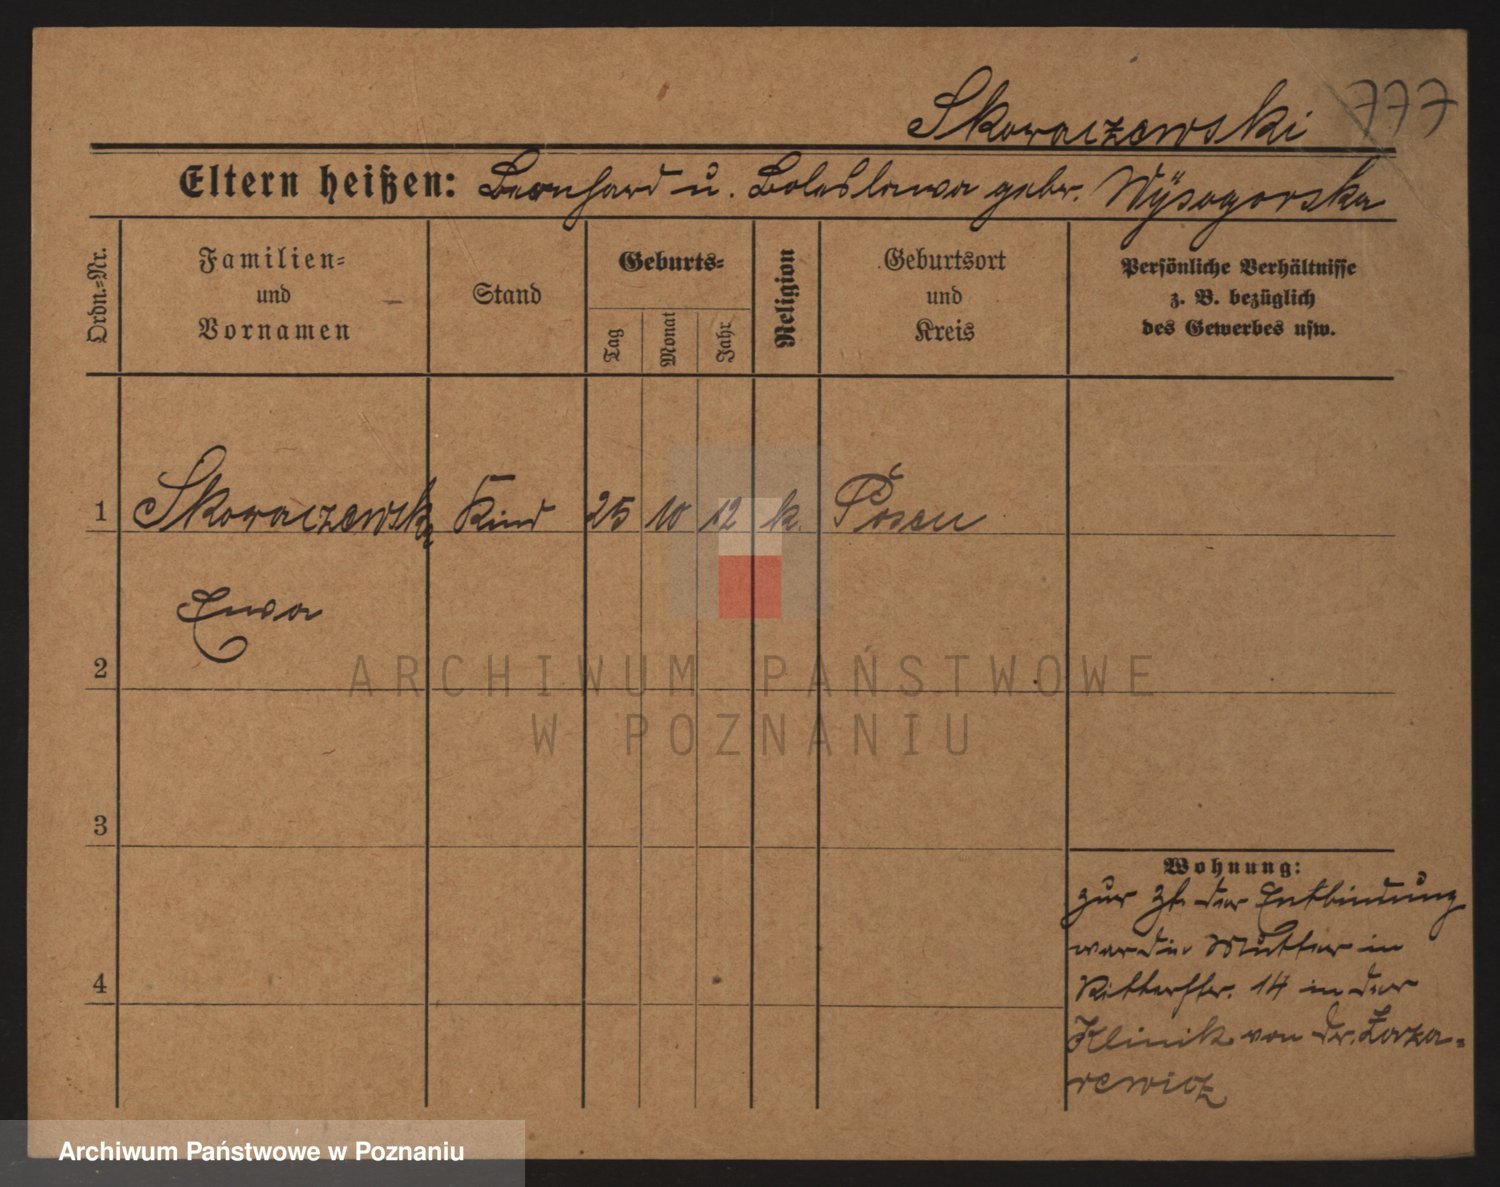 Skoraczewski 777
Eltern heißen: Bernhard u. Boleslawa gebr. Wÿsogorska
Ordn.-Nr.
Familien-
und
Vornamen
Stand
Geburts-
Tag
Monat
Jahr
Religion
Geburtsort
und
Kreis
Persönliche Verhältnisse
z. B. bezüglich
des Gewerbes usw.
1 Skoraczewska Kind 25 10 12 k. Posen
Ewa
2
3
4
Wohnung:
zur Zt. der Entbindung
war die Mutter in
Ritterstr. 14 in der
Klinik von Dr. Laza-
rewicz
ARCHIWUM PAŃSTWOWE
W POZNANIU
Archiwum Państwowe w Poznaniu